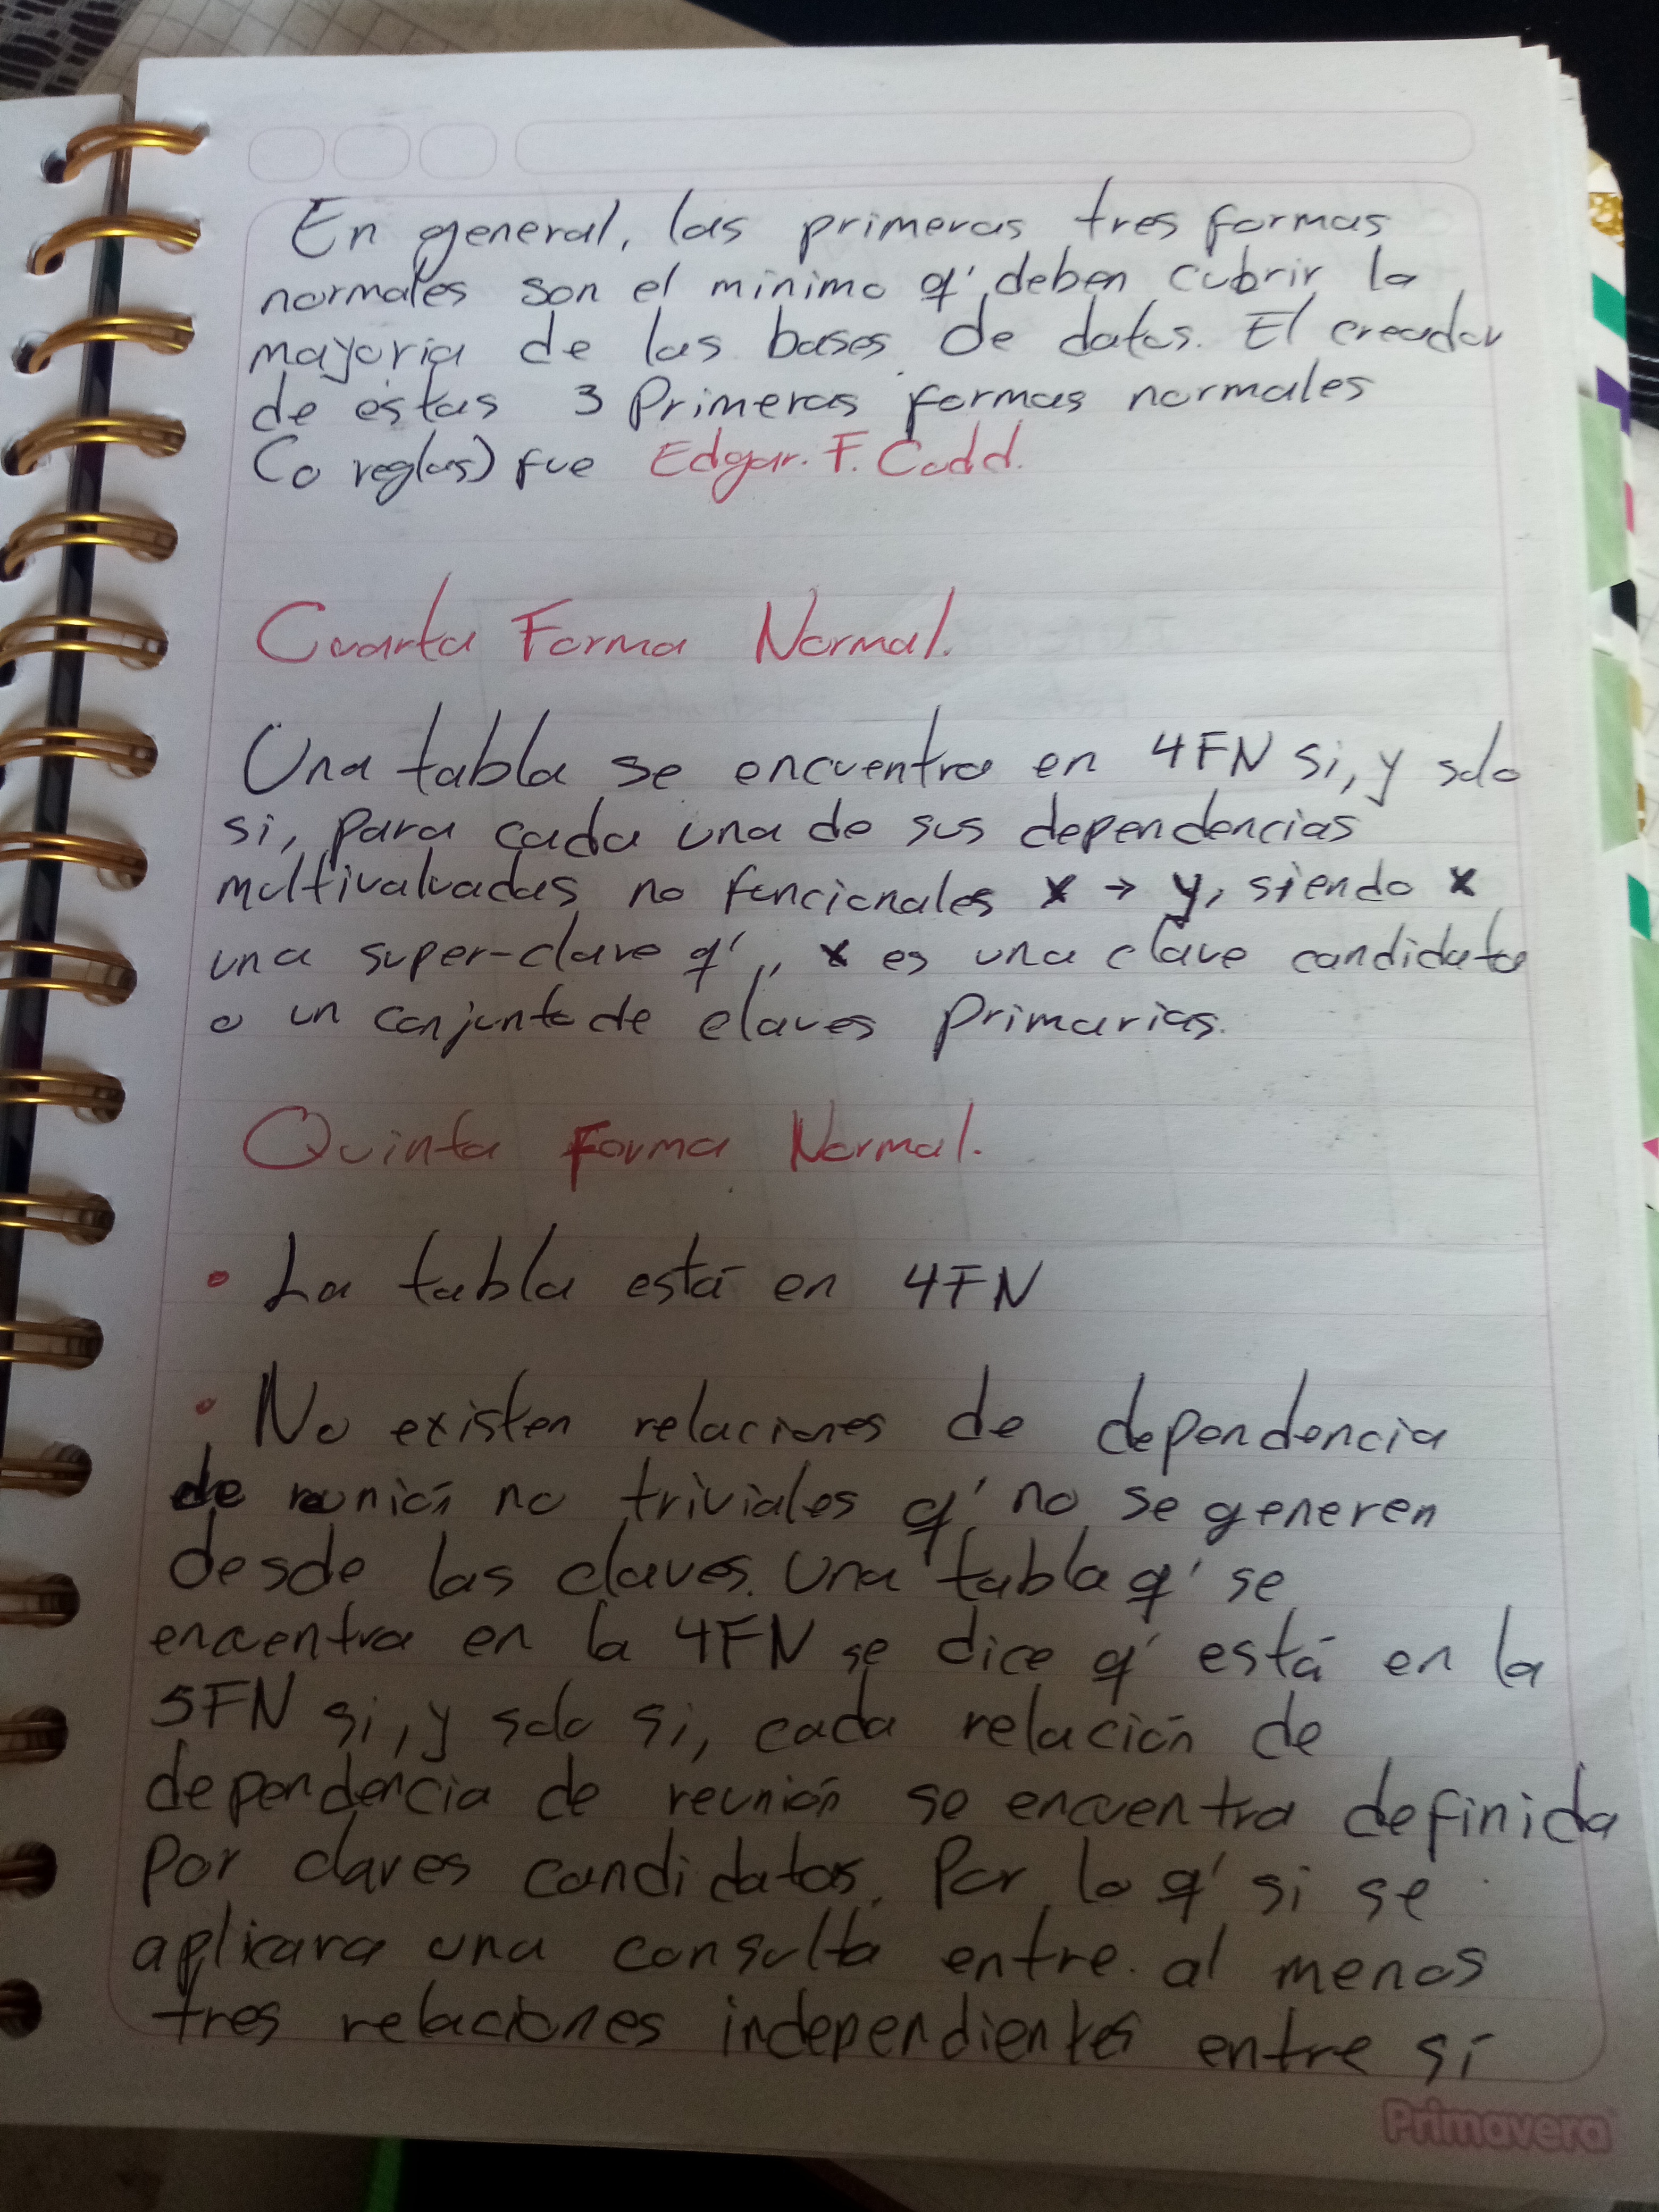 En general, las primeras tres formas
normales son el minimo q' deben cubrir la
mayoria de las bases de datos. El creador
de estas 3 Primeras formas normales
(o reglas) fue Edgar. F. Codd.
Cuarta Forma Normal.
Una tabla se encuentra en 4FN si, y solo
si, para cada una de sus dependencias
multivaluadas no funcionales x → y, siendo x
una super-clave q', x es una clave candidata
o un conjunto de claves primarias.
Quinta Forma Normal.
• La tabla está en 4FN
• No existen relaciones de dependencia
de reunión no triviales q' no se generen
desde las claves. Una tabla q' se
encuentra en la 4FN se dice q' está en la
5FN si, y solo si, cada relación de
dependencia de reunión se encuentra definida
por claves candidatas. Por lo q' si se
aplicara una consulta entre al menos
tres relaciones independientes entre sí
Primavera